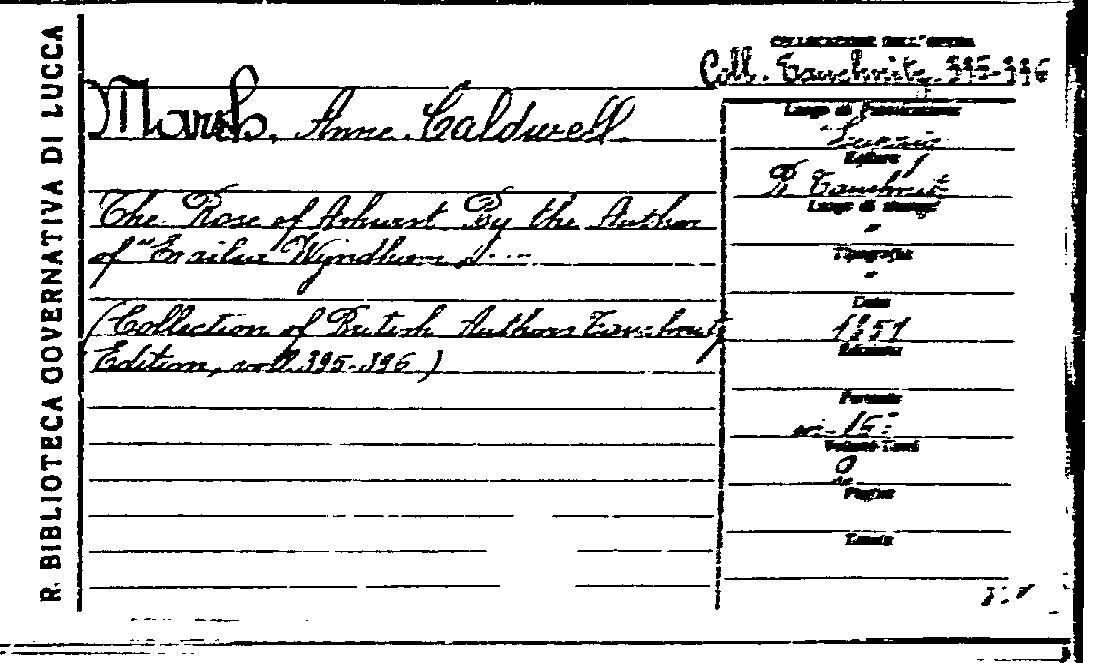 R. BIBLIOTECA GOVERNATIVA DI LUCCA
COLLOCAZIONE DELL'OPERA
Coll. Tauchnitz, 395-396
Marsh. Anne. Caldwell
The Rose of Ashurst By the Author
of "Emilia Wyndham &....
(Collection of British Authors Tauchnitz
Edition, voll. 395-396)
Luogo di Pubblicazione
Editore
B Tauchnitz
Luogo di stampa
"
Tipografia
"
Data
1857
Edizione
Formato
in-16°
Volumi-Tomi
2
Pagine